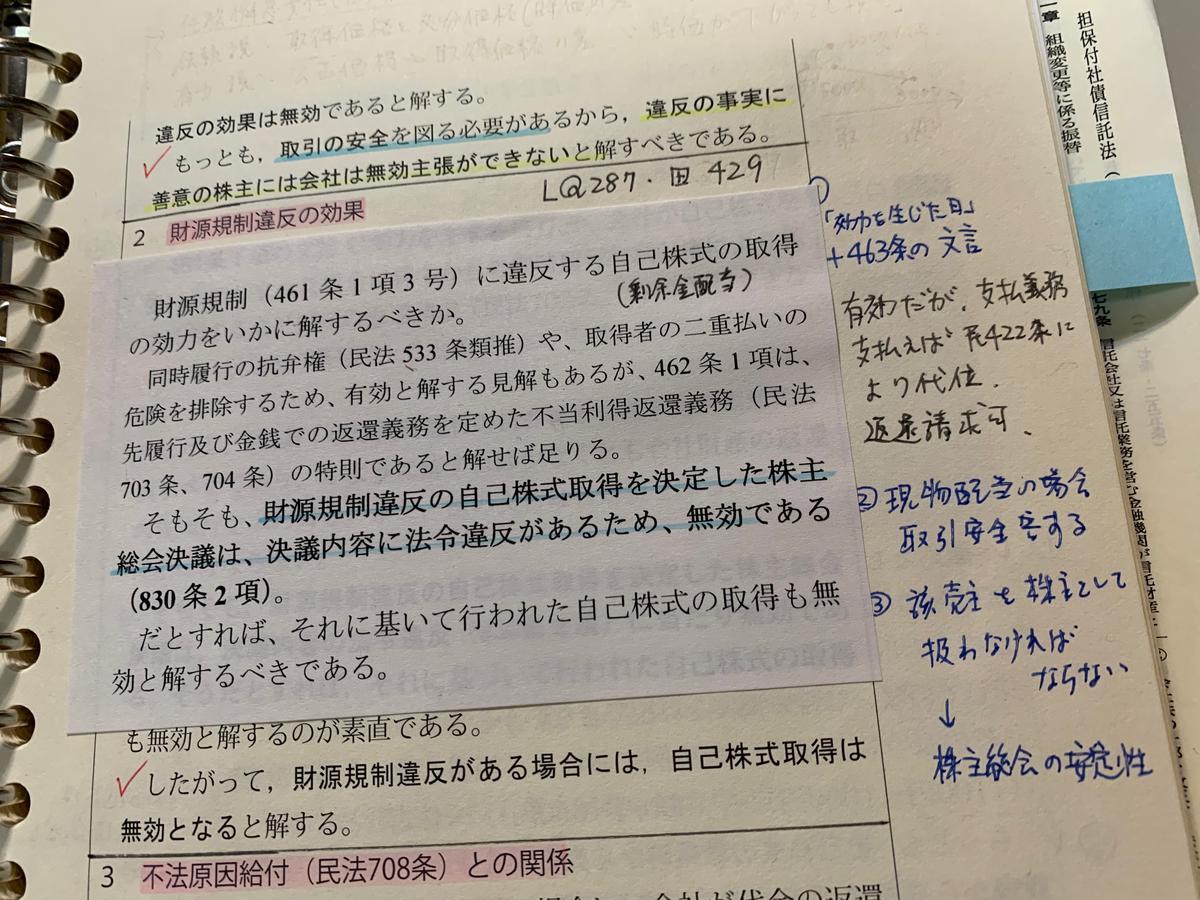 違反の効果は無効であると解する。
もっとも，取引の安全を図る必要があるから，違反の事実に
善意の株主には会社は無効主張ができないと解すべきである。
L@287・田 429
2 財源規制違反の効果
財源規制（461条1項3号）に違反する自己株式の取得
（剰余金配当）
の効力をいかに解するべきか。
同時履行の抗弁権（民法533条類推）や、取得者の二重払いの
危険を排除するため、有効と解する見解もあるが、462条1項は、
先履行及び金銭での返還義務を定めた不当利得返還義務（民法
703条、704条）の特則であると解せば足りる。
そもそも、財源規制違反の自己株式取得を決定した株主
総会決議は、決議内容に法令違反があるため、無効である
（830条2項）。
だとすれば、それに基いて行われた自己株式の取得も無
効と解するべきである。
も無効と解するのが素直である。
したがって，財源規制違反がある場合には，自己株式取得は
無効となると解する。
3 不法原因給付（民法708条）との関係
①
「効力を生じた日」
+463条の文言
有効だが、支払義務
支払えば民422条に
より代位．
返還請求可、
②現物配当の場合
取引安全害する
③ 該売主を株主として
扱わなければ
ならない
↓
株主総会の安定性
担保付社債信託法
章 組織変更等に係る振替